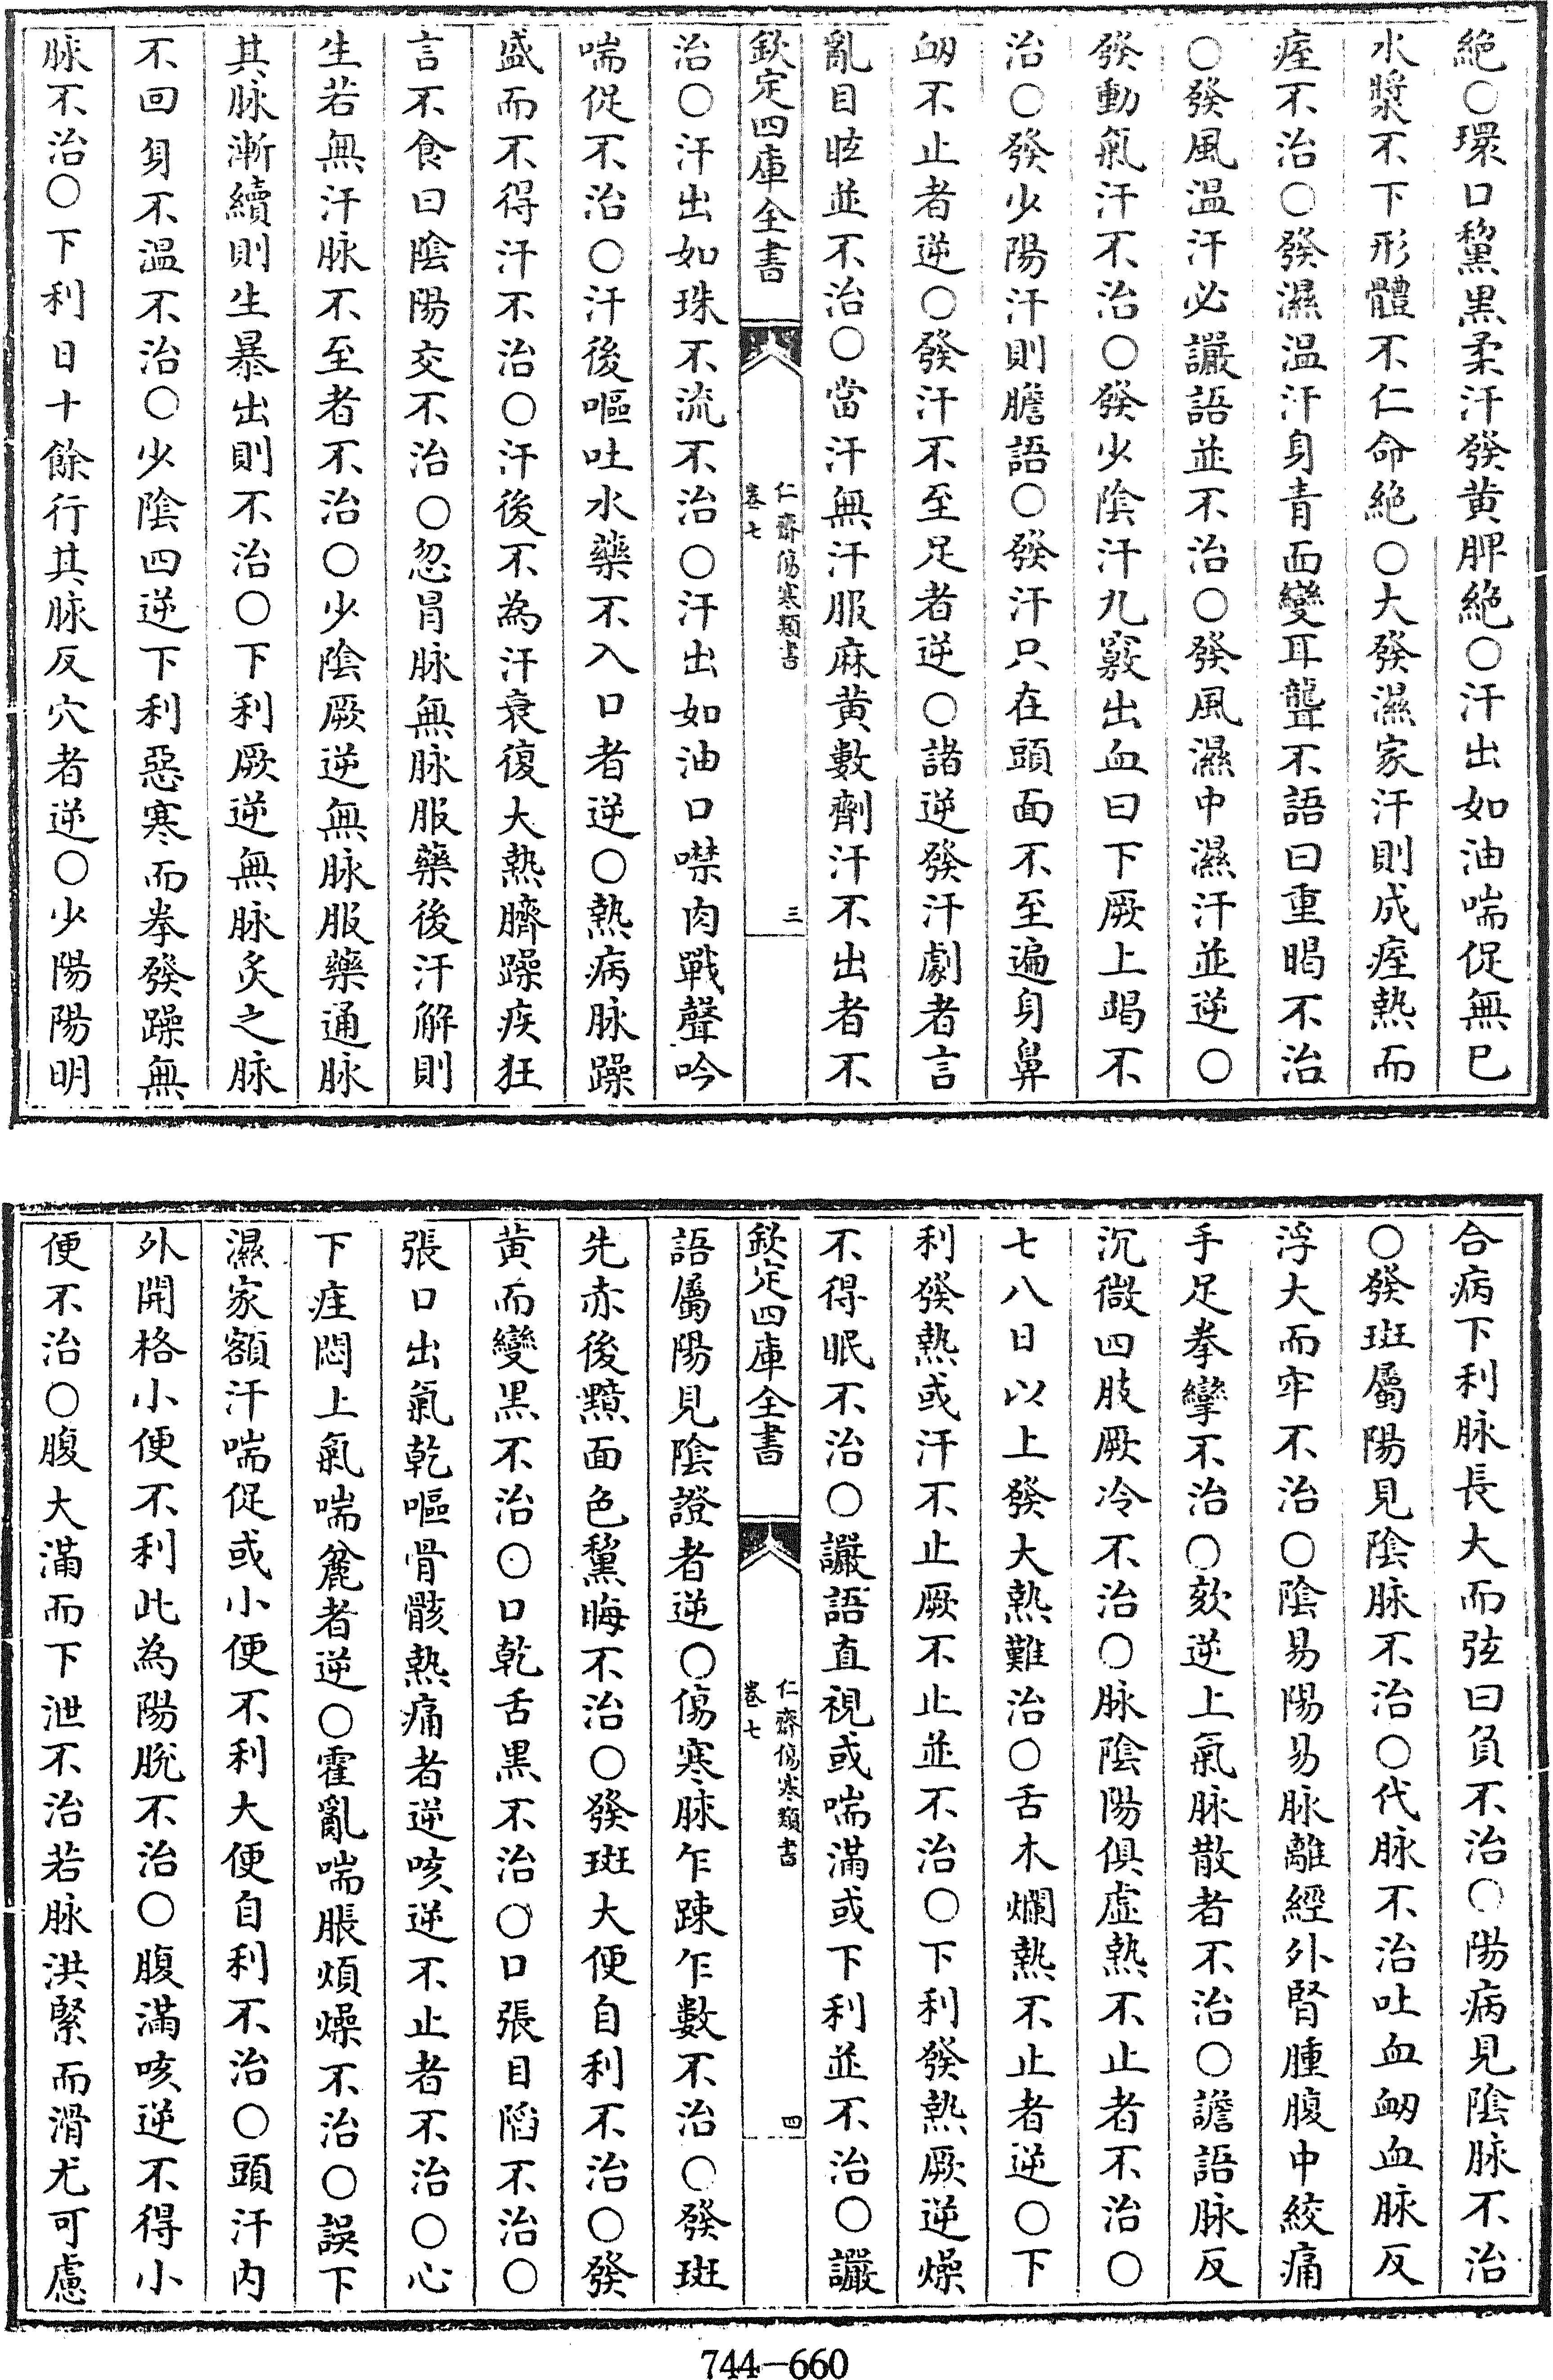 絶○環口黧黒柔汗發黄脾絶○汗出如油喘促無已
水漿不下形體不仁命絶○大發濕家汗則成痓熱而
痓不治○發濕温汗身青面變耳聾不語曰重暍不治
○發風温汗必讝語並不治○發風濕中濕汗並逆○
發動氣汗不治○發少陰汗九竅出血曰下厥上竭不
治○發少陽汗則膽語○發汗只在頭面不至遍身鼻
衂不止者逆○發汗不至足者逆○諸逆發汗劇者言
亂目眩並不治○當汗無汗服麻黄數劑汗不出者不
欽定四庫全書
仁齋傷寒類書
卷七
三
治○汗出如珠不流不治○汗出如油口噤肉戰聲吟
喘促不治○汗後嘔吐水藥不入口者逆○熱病脉躁
盛而不得汗不治○汗後不為汗衰復大熱臍躁疾狂
言不食曰陰陽交不治○忽冐脉無脉服藥後汗解則
生若無汗脉不至者不治○少陰厥逆無脉服藥通脉
其脉漸續則生暴出則不治○下利厥逆無脉灸之脉
不回身不温不治○少陰四逆下利惡寒而拳發躁無
脉不治○下利日十餘行其脉反穴者逆○少陽陽明
合病下利脉長大而弦曰負不治○陽病見陰脉不治
○發斑屬陽見陰脉不治○代脉不治吐血衂血脉反
浮大而牢不治○陰易陽易脉離經外腎腫腹中絞痛
手足拳攣不治○欬逆上氣脉散者不治○譫語脉反
沉微四肢厥冷不治○脉陰陽俱虚熱不止者不治○
七八日以上發大熱難治○舌木爛熱不止者逆○下
利發熱或汗不止厥不止並不治○下利發熱厥逆燥
不得眠不治○讝語直視或喘滿或下利並不治○讝
欽定四庫全書
仁齋傷寒類書
卷七
四
語屬陽見陰證者逆○傷寒脉乍踈乍數不治○發斑
先赤後黯面色黧晦不治○發斑大便自利不治○發
黄而變黒不治○口乾舌黒不治○口張目陷不治○
張口出氣乾嘔骨骸熱痛者逆咳逆不止者不治○心
下痓悶上氣喘麄者逆○霍亂喘脹煩燥不治○誤下
濕家額汗喘促或小便不利大便自利不治○頭汗内
外開格小便不利此為陽脫不治○腹滿咳逆不得小
便不治○腹大滿而下泄不治若脉洪緊而滑尤可慮
744-660